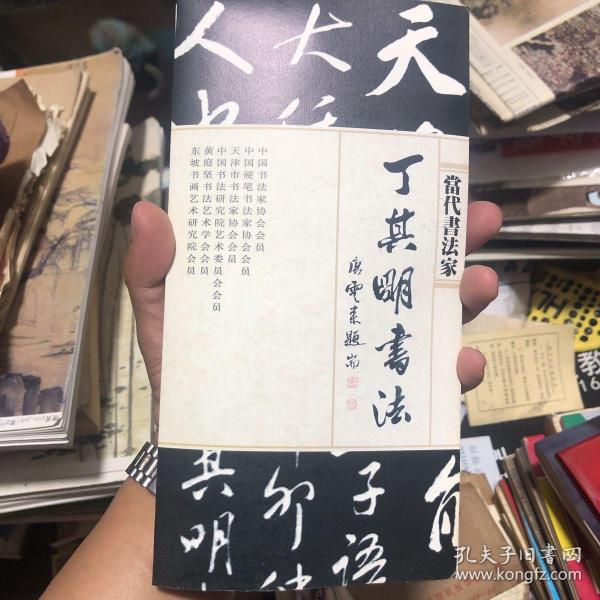 當代書法家
丁其明書法
唐雲來題耑
中国书法家协会会员
中国硬笔书法家协会会员
天津市书法家协会会员
中国书法研究院艺术委员会会员
黄庭坚书法艺术学会会员
东坡书画艺术研究院会员
天
大
人
子语
卯
其明
教
孔夫子旧书网
www.kongfz.com